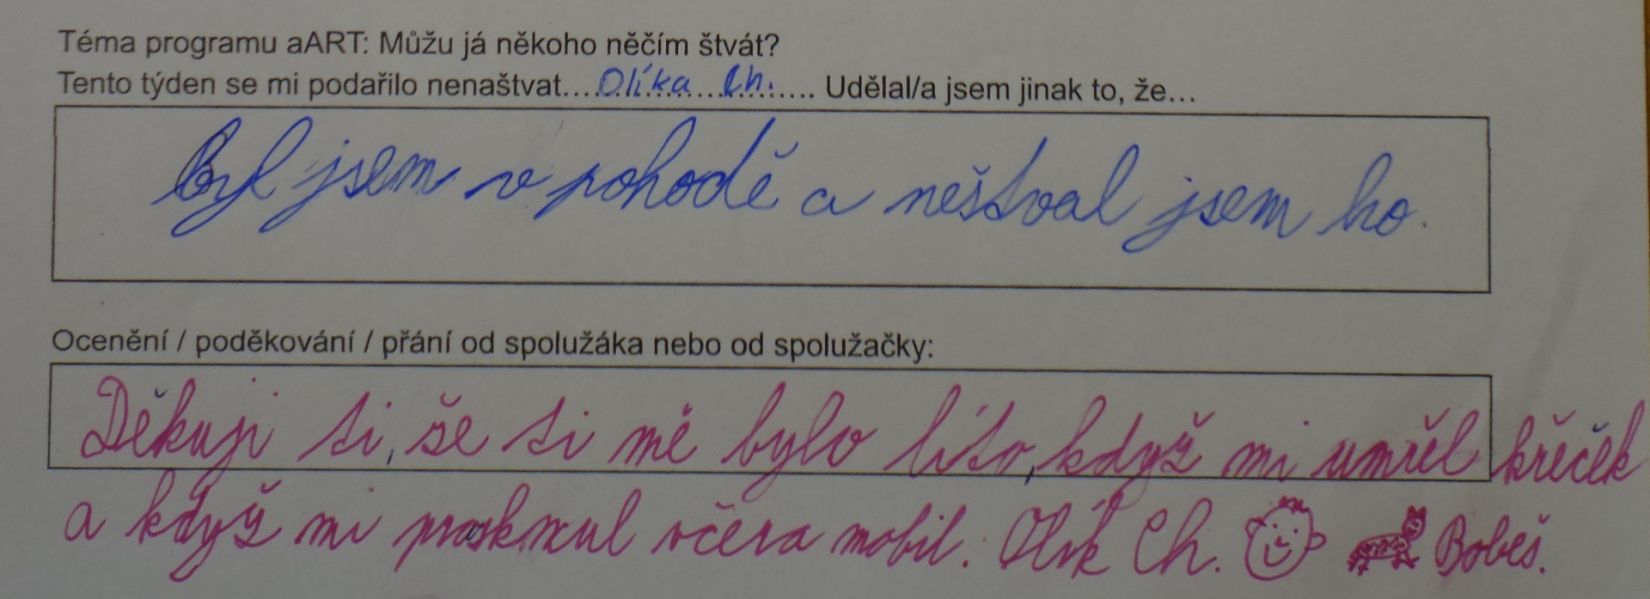 Téma programu aART: Můžu já někoho něčím štvát?
Tento týden se mi podařilo nenaštvat....Olíka Ch..... Udělal/a jsem jinak to, že...
Byl jsem v pohodě a neštval jsem ho.
Ocenění / poděkování / přání od spolužáka nebo od spolužačky:
Děkuji ti, že ti mě bylo líto, když mi umřel křeček
a když mi prasknul včera mobil. Olík Ch. Bobeš.